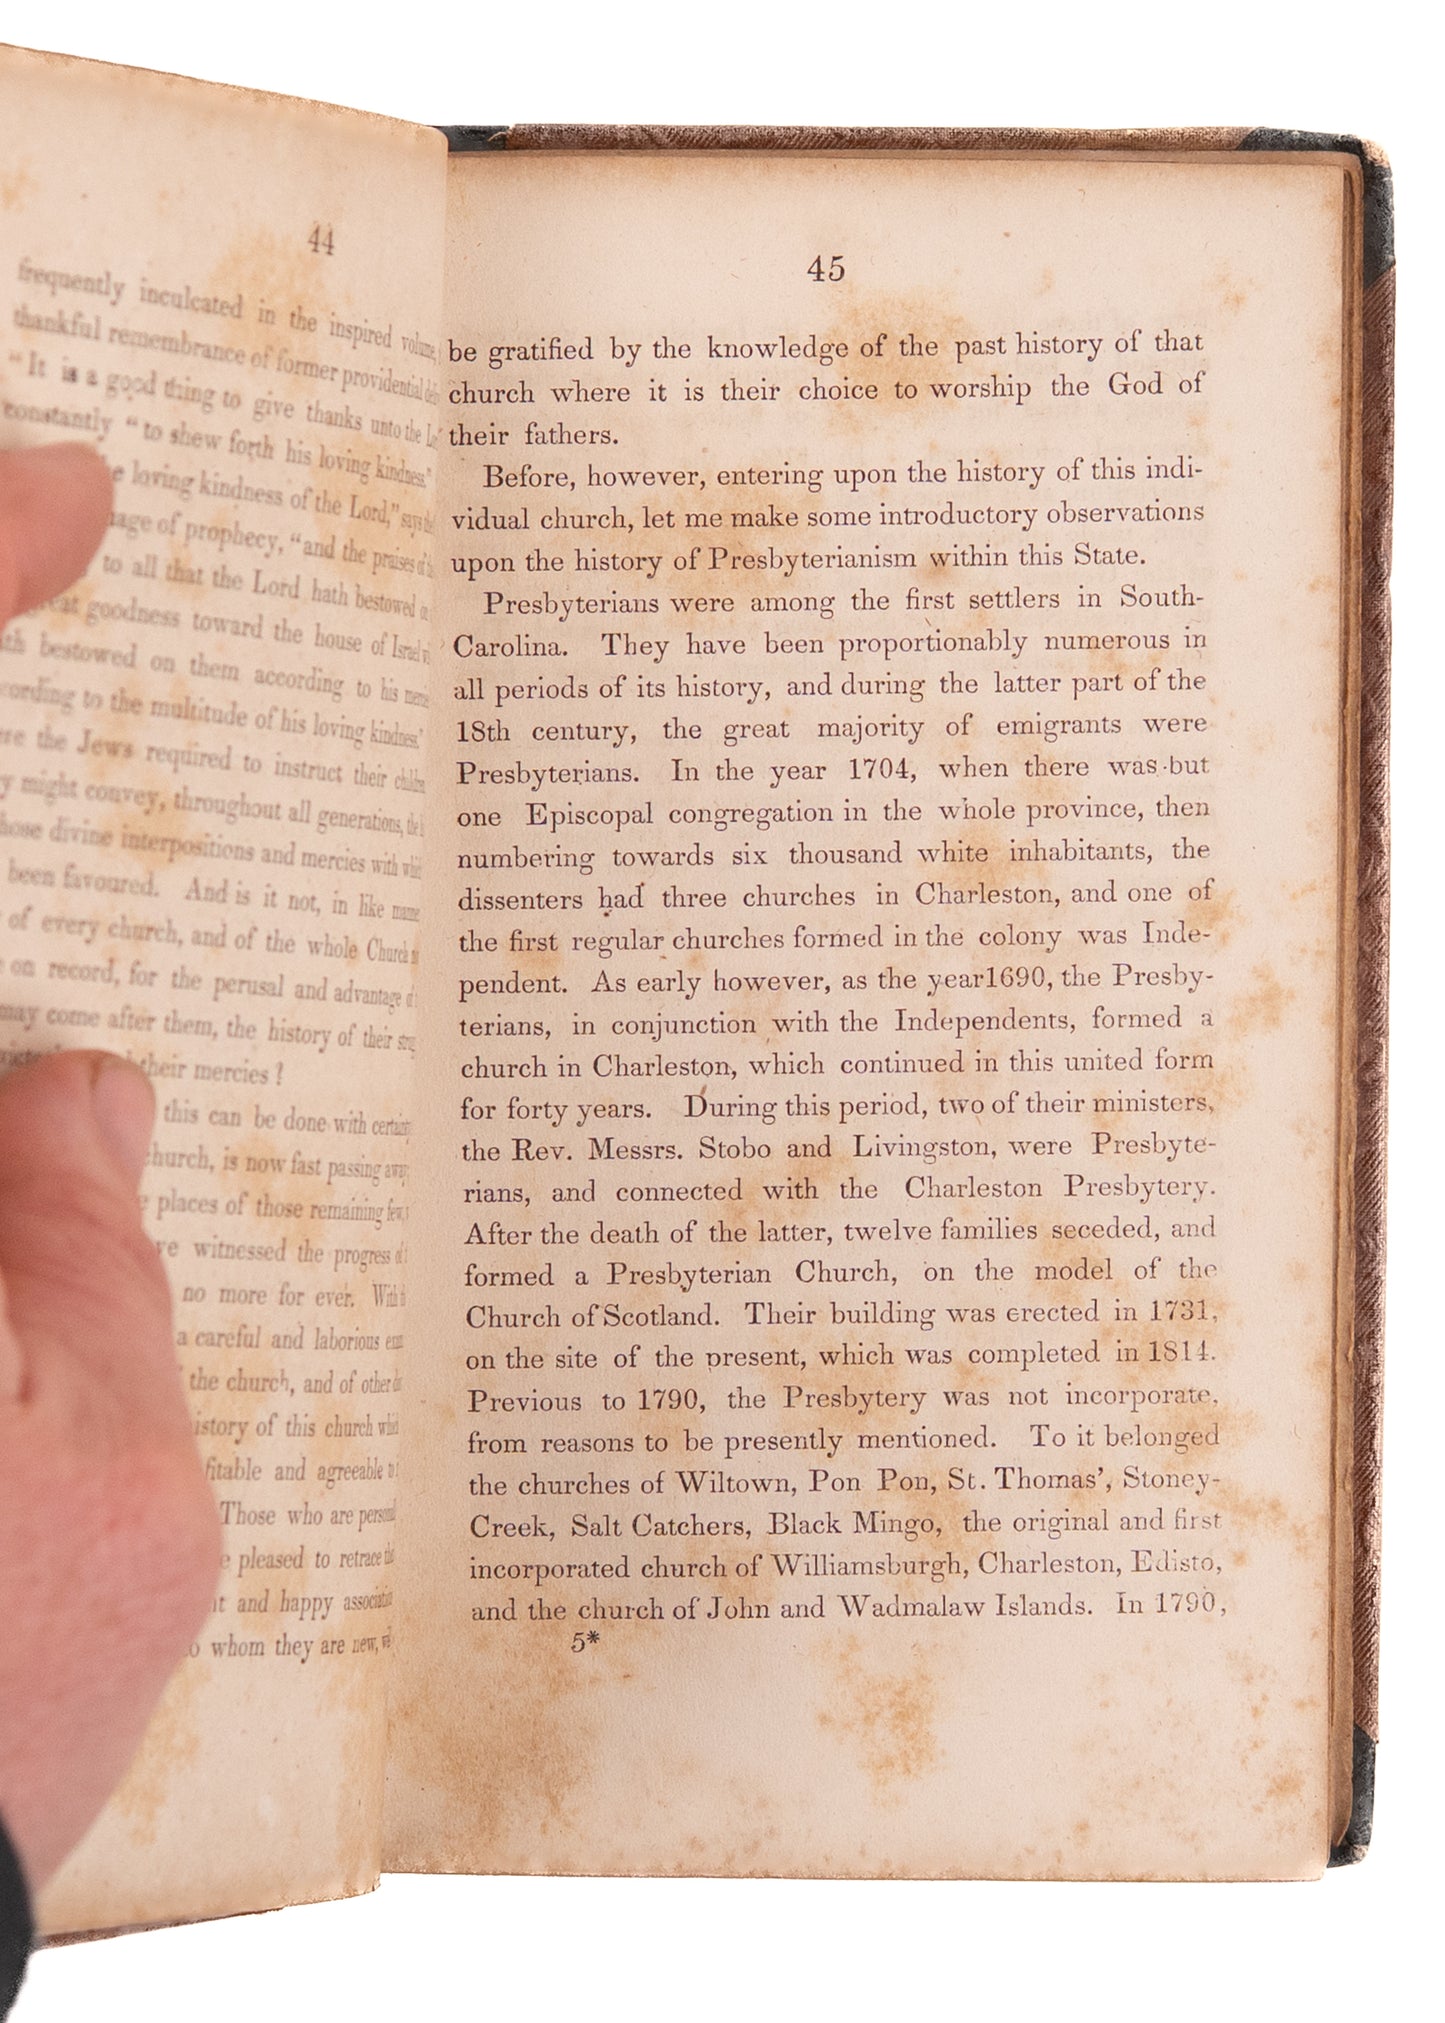 44
frequently inculcated in the inspired volume,
thankful remembrance of former providential
"It is a good thing to give thanks unto the
constantly "to shew forth his loving kindness."
loving kindness of the Lord," says the
of prophecy, "and the praises of
to all that the Lord hath bestowed on
goodness toward the house of Israel
bestowed on them according to his
to the multitude of his loving kindness."
the Jews required to instruct their
might convey, throughout all generations, the
divine interpositions and mercies with
been favoured. And is it not, in like
of every church, and of the whole Church
on record, for the perusal and advantage of
may come after them, the history of their
their mercies?
this can be done with
church, is now fast passing away;
places of those remaining few,
witnessed the progress of
no more for ever. With
a careful and laborious
the church, and of other
history of this church
and agreeable to
Those who are
pleased to retrace
and happy
whom they are new,
45
be gratified by the knowledge of the past history of that
church where it is their choice to worship the God of
their fathers.
Before, however, entering upon the history of this indi-
vidual church, let me make some introductory observations
upon the history of Presbyterianism within this State.
Presbyterians were among the first settlers in South-
Carolina. They have been proportionably numerous in
all periods of its history, and during the latter part of the
18th century, the great majority of emigrants were
Presbyterians. In the year 1704, when there was but
one Episcopal congregation in the whole province, then
numbering towards six thousand white inhabitants, the
dissenters had three churches in Charleston, and one of
the first regular churches formed in the colony was Inde-
pendent. As early however, as the year1690, the Presby-
terians, in conjunction with the Independents, formed a
church in Charleston, which continued in this united form
for forty years. During this period, two of their ministers,
the Rev. Messrs. Stobo and Livingston, were Presbyte-
rians, and connected with the Charleston Presbytery.
After the death of the latter, twelve families seceded, and
formed a Presbyterian Church, on the model of the
Church of Scotland. Their building was erected in 1731,
on the site of the present, which was completed in 1814.
Previous to 1790, the Presbytery was not incorporate,
from reasons to be presently mentioned. To it belonged
the churches of Wiltown, Pon Pon, St. Thomas', Stoney-
Creek, Salt Catchers, Black Mingo, the original and first
incorporated church of Williamsburgh, Charleston, Edisto,
and the church of John and Wadmalaw Islands. In 1790,
5*